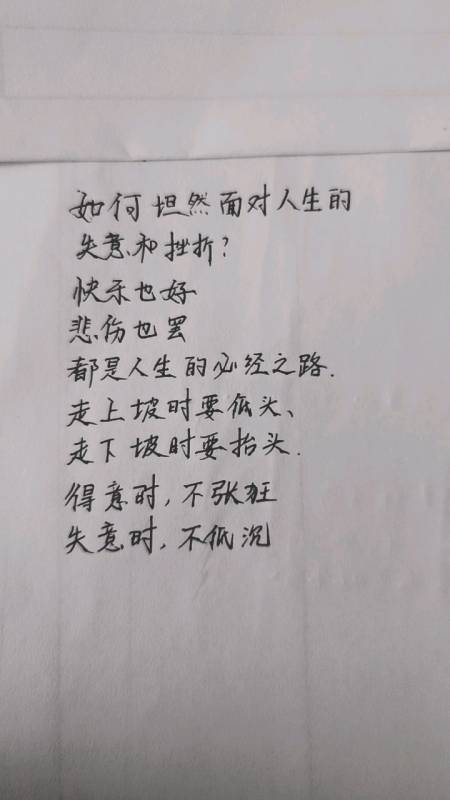 如何坦然面对人生的
失意和挫折?
快乐也好
悲伤也罢
都是人生的必经之路.
走上坡时要低头、
走下坡时要抬头.
得意时,不张狂
失意时,不低沉